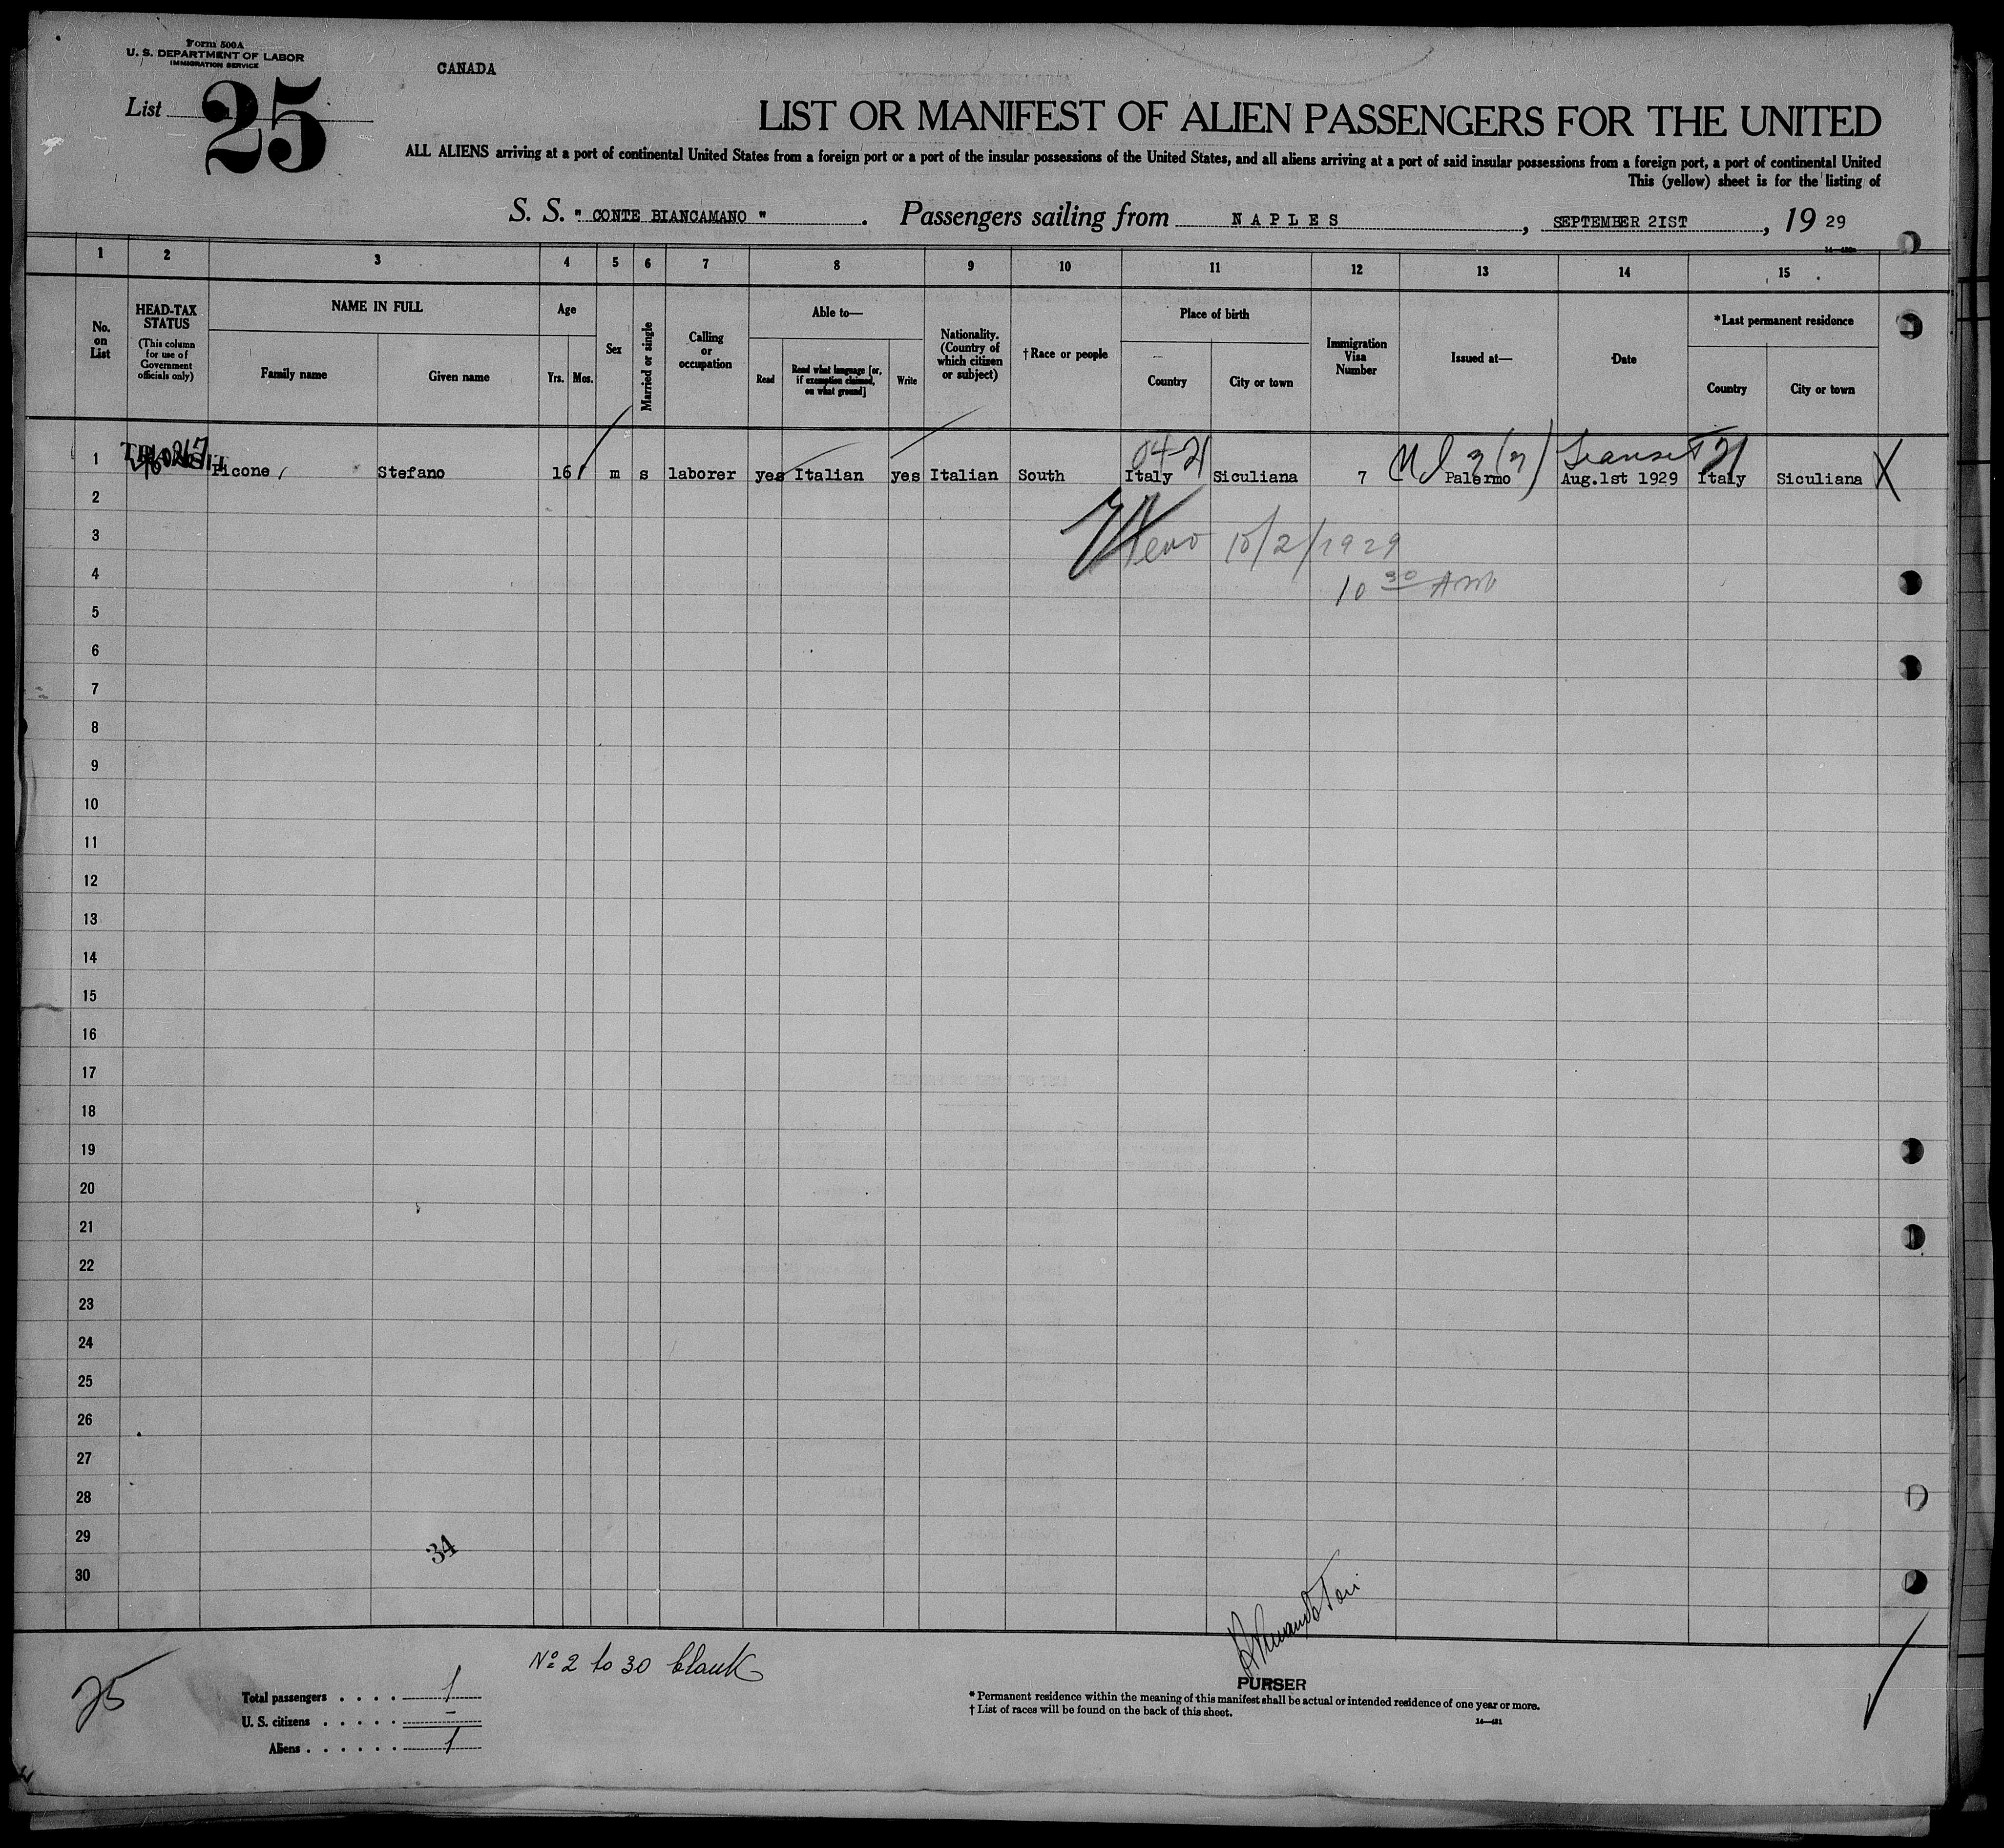 Form 500A
U. S. DEPARTMENT OF LABOR
IMMIGRATION SERVICE
CANADA
List 25
LIST OR MANIFEST OF ALIEN PASSENGERS FOR THE UNITED
ALL ALIENS arriving at a port of continental United States from a foreign port or a port of the insular possessions of the United States, and all aliens arriving at a port of said insular possessions from a foreign port, a port of continental United
This (yellow) sheet is for the listing of
S. S. " CONTE BIANCAMANO " . Passengers sailing from NAPLES , SEPTEMBER 21ST , 19 29
1 2 3 4 5 6 7 8 9 10 11 12 13 14 15
No. on List
HEAD-TAX STATUS
(This column for use of Government officials only)
NAME IN FULL
Family name
Given name
Age
Yrs. Mos.
Sex
Married or single
Calling or occupation
Able to—
Read
Read what language [or, if exemption claimed, on what ground]
Write
Nationality. (Country of which citizen or subject)
†Race or people
Place of birth
Country
City or town
Immigration Visa Number
Issued at—
Date
*Last permanent residence
Country
City or town
04-21 Transit 21
1 TRANSIT Picone Stefano 16 m s laborer yes Italian yes Italian South Italy Siculiana 7 Palermo Aug.1st 1929 Italy Siculiana X
2
3
10/2/1929
4
10 30 AM
5
6
7
8
9
10
11
12
13
14
15
16
17
18
19
20
21
22
23
24
25
26
27
28
29
34
30
No 2 to 30 blank
25
PURSER
Total passengers . . . . 1
U. S. citizens . . . . . –
Aliens . . . . . . 1
* Permanent residence within the meaning of this manifest shall be actual or intended residence of one year or more.
† List of races will be found on the back of this sheet.
14—421